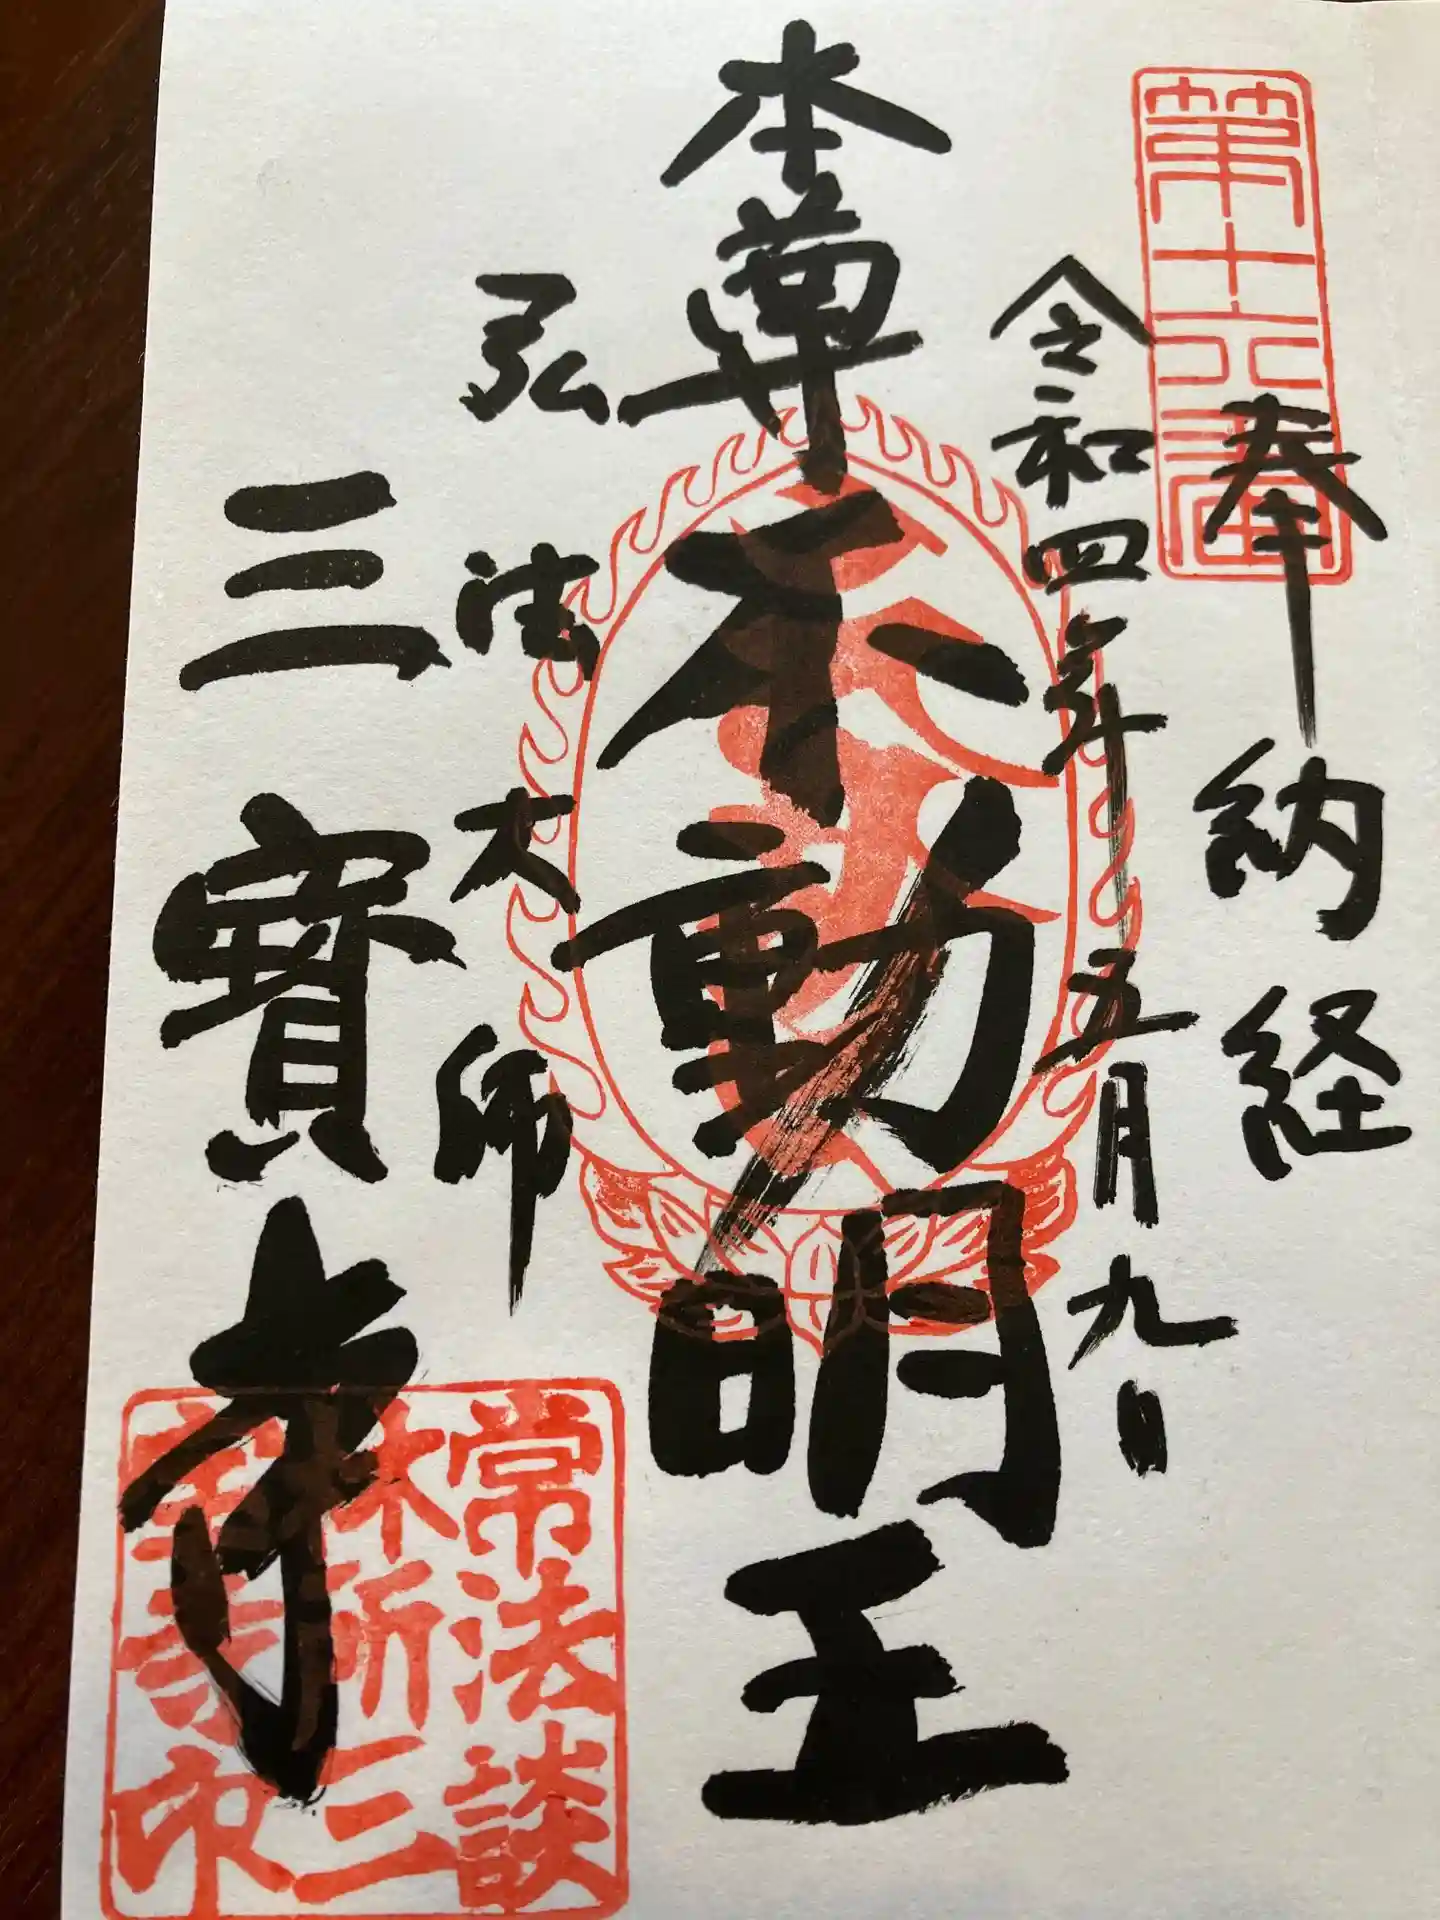 奉納経
令和四年五月九日
本尊不動明王
弘法大師
三寳寺
常法談
林所三
寳寺印